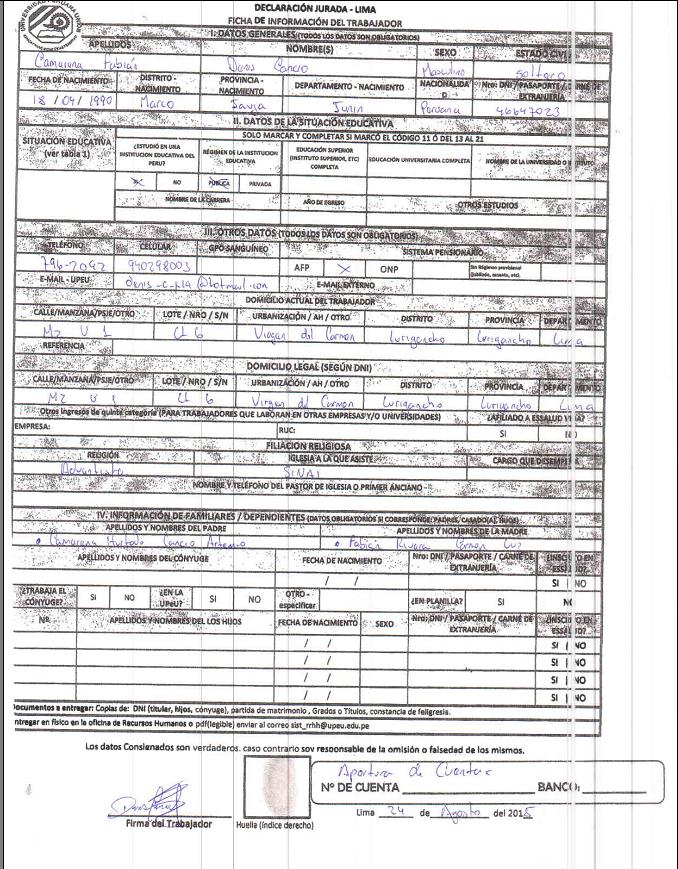 UNIVERSIDAD PERUANA UNION
DECLARACIÓN JURADA - LIMA
FICHA DE INFORMACIÓN DEL TRABAJADOR
I. DATOS GENERALES (TODOS LOS DATOS SON OBLIGATORIOS)
APELLIDOS NOMBRE(S) SEXO ESTADO CIVIL
Camarena Fabián Denis Cancio Masculino Soltero
FECHA DE NACIMIENTO DISTRITO - NACIMIENTO PROVINCIA - NACIMIENTO DEPARTAMENTO - NACIMIENTO NACIONALIDAD Nro: DNI / PASAPORTE / CARNÉ DE EXTRANJERÍA
18 / 04 / 1990 Marco Jauja Junin Peruana 46647023
II. DATOS DE LA SITUACIÓN EDUCATIVA
SOLO MARCAR Y COMPLETAR SI MARCÓ EL CÓDIGO 11 Ó DEL 13 AL 21
SITUACIÓN EDUCATIVA (ver tabla 1) ¿ESTUDIÓ EN UNA INSTITUCION EDUCATIVA DEL PERU? RÉGIMEN DE LA INSTITUCION EDUCATIVA EDUCACIÓN SUPERIOR (INSTITUTO SUPERIOR, ETC) COMPLETA EDUCACIÓN UNIVERSITARIA COMPLETA NOMBRE DE LA UNIVERSIDAD O INSTITUTO
NO PÚBLICA PRIVADA
NOMBRE DE LA CARRERA AÑO DE EGRESO OTROS ESTUDIOS
III. OTROS DATOS (TODOS LOS DATOS SON OBLIGATORIOS)
TELÉFONO CELULAR GPO SANGUÍNEO SISTEMA PENSIONARIO
796-2092 940298003 AFP X ONP Sin Régimen provisional (Jubilado, cesante, etc).
E-MAIL - UPEU denis-c-p19@hotmail.com E-MAIL EXTERNO
DOMICILIO ACTUAL DEL TRABAJADOR
CALLE/MANZANA/PSJE/OTRO LOTE / NRO / S/N URBANIZACIÓN / AH / OTRO DISTRITO PROVINCIA DEPARTAMENTO
Mz U 1 Lt 6 Virgen del Carmen Lurigancho Lurigancho Lima
REFERENCIA
DOMICILIO LEGAL (SEGÚN DNI)
CALLE/MANZANA/PSJE/OTRO LOTE / NRO / S/N URBANIZACIÓN / AH / OTRO DISTRITO PROVINCIA DEPARTAMENTO
Mz U 1 Lt 6 Virgen del Carmen Lurigancho Lurigancho Lima
Otros ingresos de quinta categoría (PARA TRABAJADORES QUE LABORAN EN OTRAS EMPRESAS Y/O UNIVERSIDADES) ¿AFILIADO A ESSALUD VIDA?
EMPRESA: RUC: SI NO
FILIACIÓN RELIGIOSA
RELIGIÓN IGLESIA A LA QUE ASISTE CARGO QUE DESEMPEÑA
Adventista SINAI
NOMBRE Y TELÉFONO DEL PASTOR DE IGLESIA O PRIMER ANCIANO
IV. INFORMACIÓN DE FAMILIARES / DEPENDIENTES (DATOS OBLIGATORIOS SI CORRESPONDE: PADRES, CASADO(A), HIJOS)
APELLIDOS Y NOMBRES DEL PADRE APELLIDOS Y NOMBRES DE LA MADRE
Camarena Hurtado Cancio Artemio Fabián Rivera Carmen Luz
APELLIDOS Y NOMBRES DEL CÓNYUGE FECHA DE NACIMIENTO Nro: DNI / PASAPORTE / CARNÉ DE EXTRANJERÍA ¿INSCRITO EN ESSALUD?
/ / SI NO
¿TRABAJA EL CÓNYUGE? SI NO ¿EN LA UPeU? SI NO OTRO - especificar ¿EN PLANILLA? SI NO
Nº APELLIDOS Y NOMBRES DE LOS HIJOS FECHA DE NACIMIENTO SEXO Nro: DNI / PASAPORTE / CARNÉ DE EXTRANJERÍA ¿INSCRITO EN ESSALUD?
/ / SI NO
/ / SI NO
/ / SI NO
/ / SI NO
Documentos a entregar: Copias de: DNI (titular, hijos, cónyuge), partida de matrimonio , Grados o Títulos, constancia de feligresia.
Entregar en físico en la oficina de Recursos Humanos o pdf(legible) enviar al correo sist_rrhh@upeu.edu.pe
Los datos Consignados son verdaderos, caso contrario soy responsable de la omisión o falsedad de los mismos.
Apertura de Cuenta
Nº DE CUENTA BANCO:
Firma del Trabajador Huella (índice derecho)
Lima 24 de Agosto del 2015